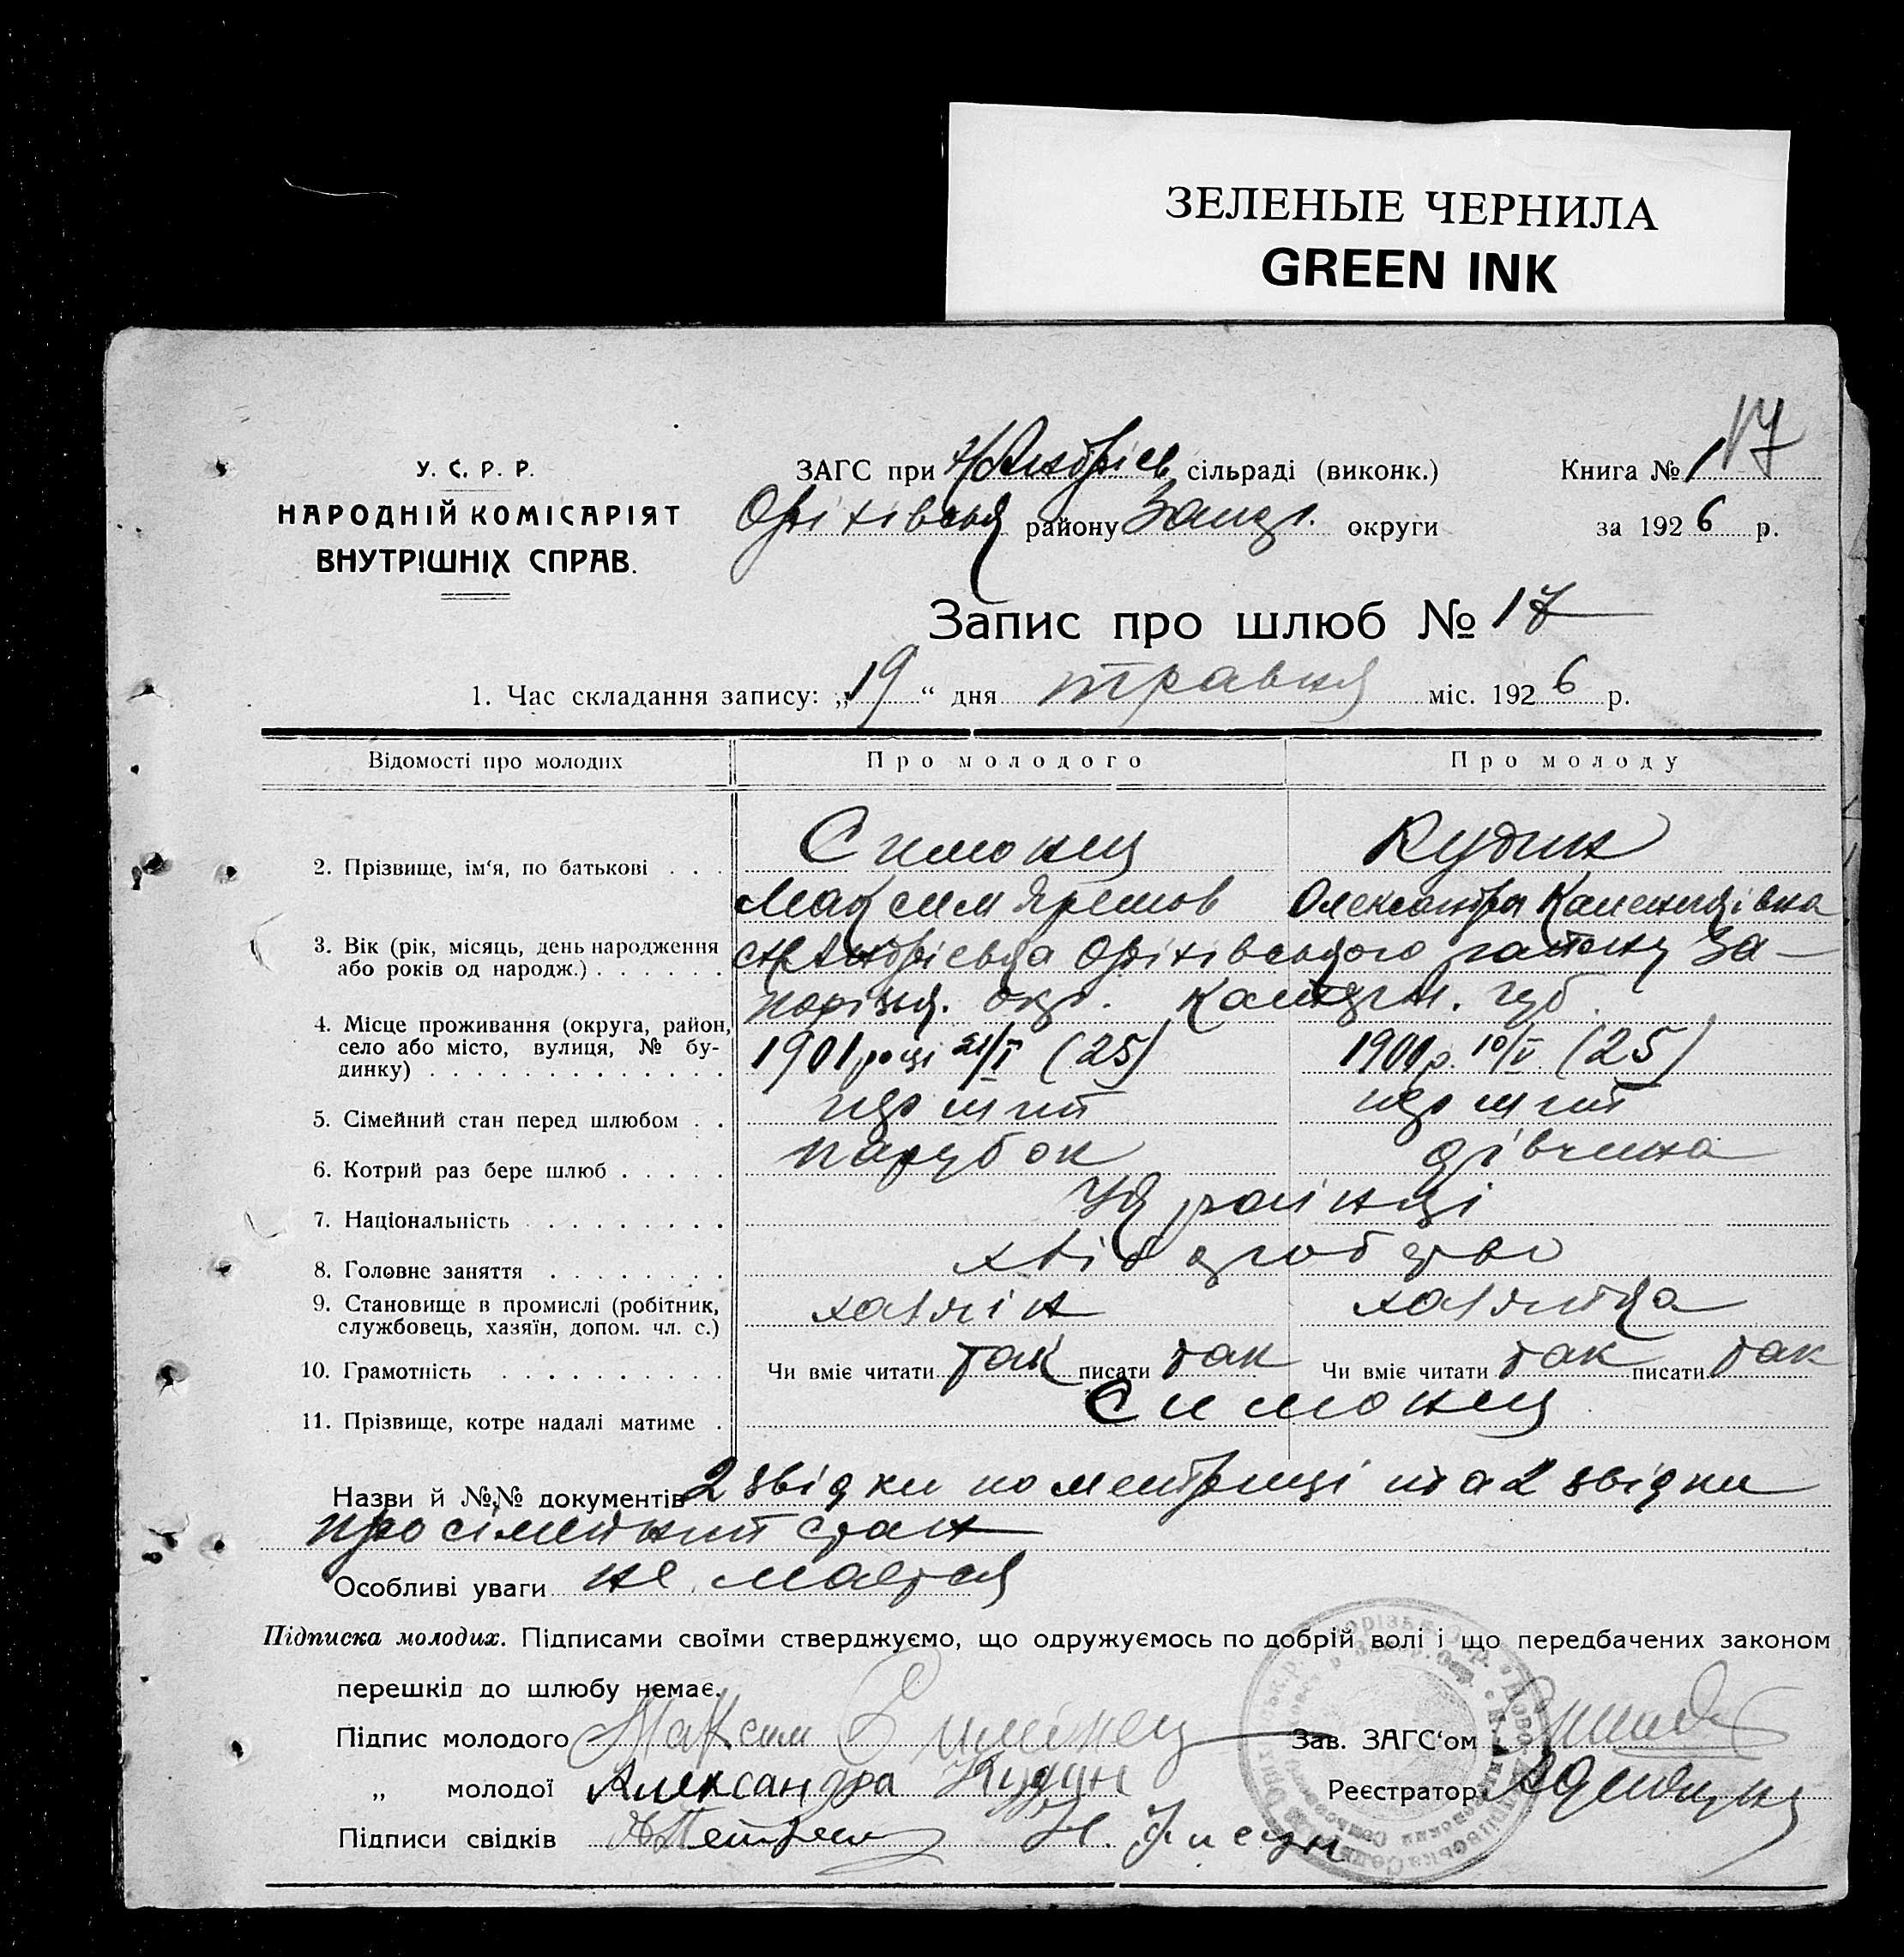 ЗЕЛЕНЫЕ ЧЕРНИЛА
GREEN INK
17
У. С. Р. Р.
НАРОДНІЙ КОМІСАРІЯТ
ВНУТРІШНІХ СПРАВ.
ЗАГС при Н/Андріев. сільраді (виконк.) Книга № 1
Оріхівськ району Запор. округи за 1926 р.
Запис про шлюб № 17
1. Час складання запису: „19“ дня травня міс. 1926 р.
Відомості про молодих Про молодого Про молоду
2. Прізвище, ім‘я, по батькові Симонец Кудин
Максим Яремов Олександра
3. Вік (рік, місяць, день народження
або років од народж.)
Оріхівського району За-
порізьк. окр. губ.
4. Місце проживання (округа, район,
село або місто, вулиця, № бу-
динку)
1901 році 21/I (25) 1901 р. 10/V (25)
5. Сімейний стан перед шлюбом
6. Котрий раз бере шлюб парубок дівчина
7. Національність Українці
8. Головне заняття хліборобство
9. Становище в промислі (робітник,
службовець, хазяїн, допом. чл. с.) хазяїн хазяйка
10. Грамотність Чи вміє читати так писати так Чи вміє читати так писати так
11. Прізвище, котре надалі матиме Симонец
Назви й №№ документів 2 звідки по метриці та 2 звідки
про сімейний стан
Особливі уваги не мається
Підписка молодих. Підписами своїми стверджуємо, що одружуємось по добрій волі і що передбачених законом
перешкід до шлюбу немає.
Підпис молодого Максим Симонец Зав. ЗАГС‘ом
„ молодої Александра Кудин Реєстратор
Підписи свідків Н. Фисун